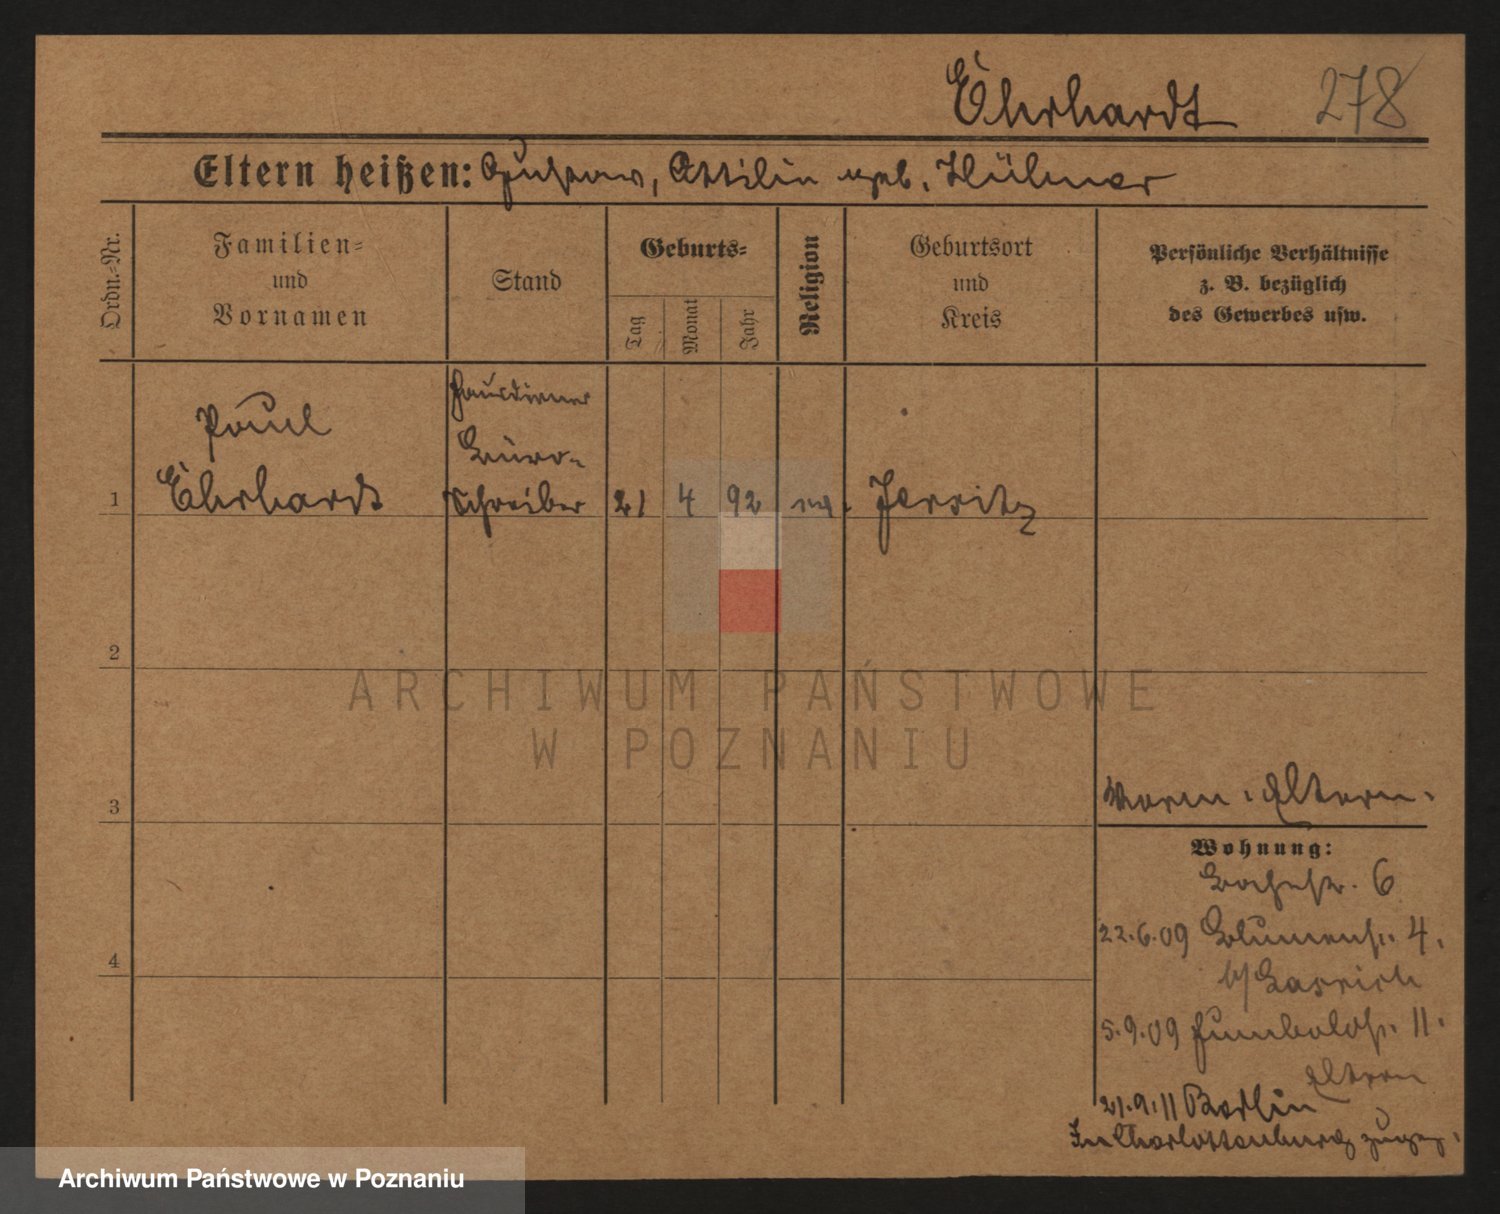 Ehrhardt 278
Eltern heißen: Gustav, Ottilie geb. Hübner
Ordn.=Nr.
Familien=
und
Vornamen
Stand
Geburts=
Tag
Monat
Jahr
Religion
Geburtsort
und
Kreis
Persönliche Verhältnisse
z. B. bezüglich
des Gewerbes usw.
Paul
Ehrhardt
Hausdiener
Büro-
schreiber
1
21 4 92 ev. Jersitz
2
3
4
Vorm: Eltern.
Wohnung:
6
22.6.09 Blumenstr. 4.
b/
5.9.09 Humboldstr. 11.
Eltern
21.9.11 Berlin
In Charlottenburg zugez.
ARCHIWUM PAŃSTWOWE
W POZNANIU
Archiwum Państwowe w Poznaniu